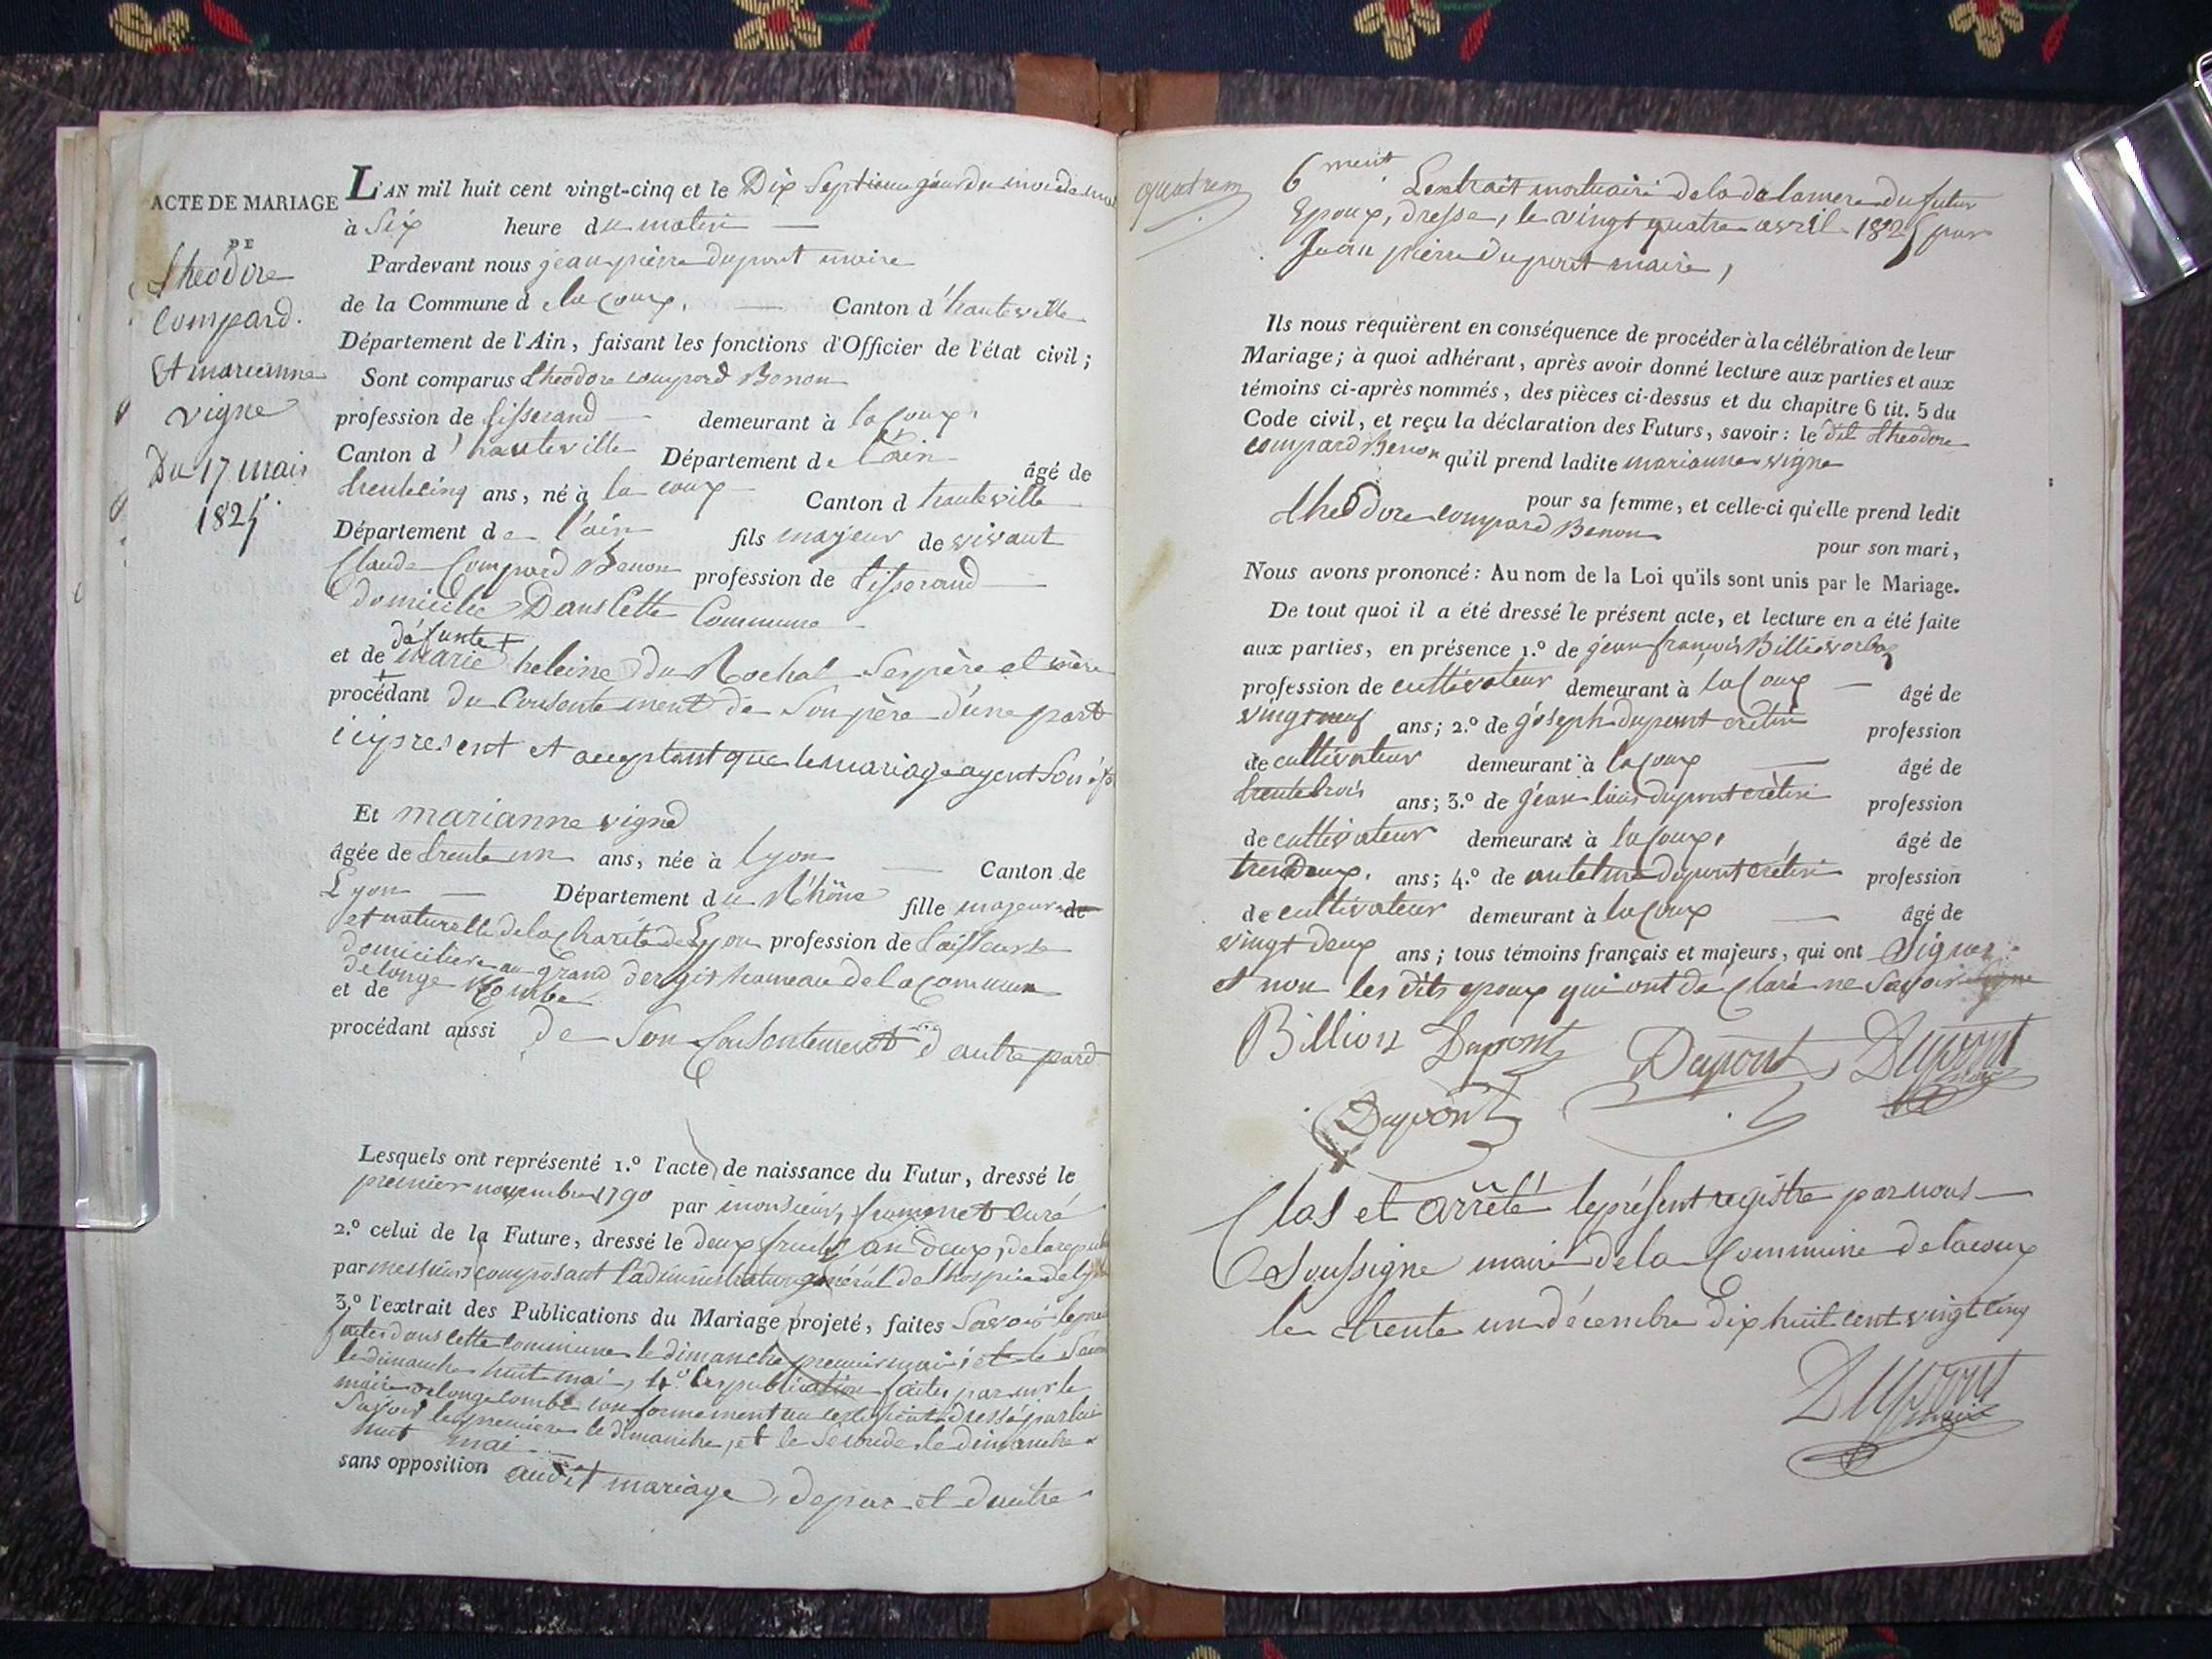 ACTE DE MARIAGE
DE
theodore
Compard.
Et marianne
vigne
Du 17 mai
1825
L'AN mil huit cent vingt-cinq et le Dix Septieme jour du mois de mai
à Six heure du matin
Pardevant nous jean pierre dupont maire
de la Commune d e lacoux. Canton d'hauteville
Département de l'Ain, faisant les fonctions d'Officier de l'état civil;
Sont comparus theodore compard Benon
profession de tisserand demeurant à lacoux.
Canton d'hauteville Département de l'ain âgé de
trentecinq ans, né à la coux Canton d hauteville
Département de l'ain fils majeur de vivant
Claude Compard Benon profession de tisserand
domicilié Dans Cette Commune
défunte +
et de marie heleine du Rochat Ses père et mère
procédant du Consentement de Son père d'une part
ici present et acceptant que le mariage ayent Son
Et marianne vigne
âgée de trente un ans, née à lyon Canton de
Lyon Département du Rhône fille majeure de
et naturelle de la Charité de Lyon profession de tailleuse
domiciliere au grand dergit hameau de la commune
de longe Combe
et de
procédant aussi de Son Consentement d'autre pard
Lesquels ont représenté 1.º l'acte de naissance du Futur, dressé le
premier novembre 1790 par monsieur, curé
2.º celui de la Future, dressé le deux an deux, de la
par messieurs composant l'administration général de lhospice de
3.º l'extrait des Publications du Mariage projeté, faites Savoir
faites dans cette commune le dimanche premier mai; et le
le dimanche huit mai, 4.º les publication faites par mr le
maire de longe combe conformement au certificat dressé par lui
Savoir la premiere le dimanche, et le Seconde le dimanche
huit mai
sans opposition audit mariage, de par et d'autre
6 ment. L'extrait mortuaire de la de la mere du futur
Epoux, dresse, le vingt quatre avril 1825 par
Jean pierre dupont maire,
Ils nous requièrent en conséquence de procéder à la célébration de leur
Mariage; à quoi adhérant, après avoir donné lecture aux parties et aux
témoins ci-après nommés, des pièces ci-dessus et du chapitre 6 tit. 5 du
Code civil, et reçu la déclaration des Futurs, savoir: le dit theodore
compard Benon qu'il prend ladite marianne vigne
pour sa femme, et celle-ci qu'elle prend ledit
theodore compard Benon
pour son mari,
Nous avons prononcé: Au nom de la Loi qu'ils sont unis par le Mariage.
De tout quoi il a été dressé le présent acte, et lecture en a été faite
aux parties, en présence 1.º de jean françois Billion
profession de cultivateur demeurant à la Coux âgé de
vingt neuf ans; 2.º de joseph dupont crétin profession
de cultivateur demeurant à la Coux âgé de
trente trois ans; 3.º de jean louis dupont crétin profession
de cultivateur demeurant à la Coux, âgé de
trendeux. ans; 4.º de antelme dupont crétin profession
de cultivateur demeurant à la Coux âgé de
vingt deux ans; tous témoins français et majeurs, qui ont Signer
et non les dits epoux qui ont de Claré ne Savoir signe
Billion Dupont Dupont Dupont
maire
Dupont
Clos et arrêté le présent registre par nous
Soussigne maire de la Commune de lacoux
le trente un décembre dix huit cent vingt cinq
Dupont
maire